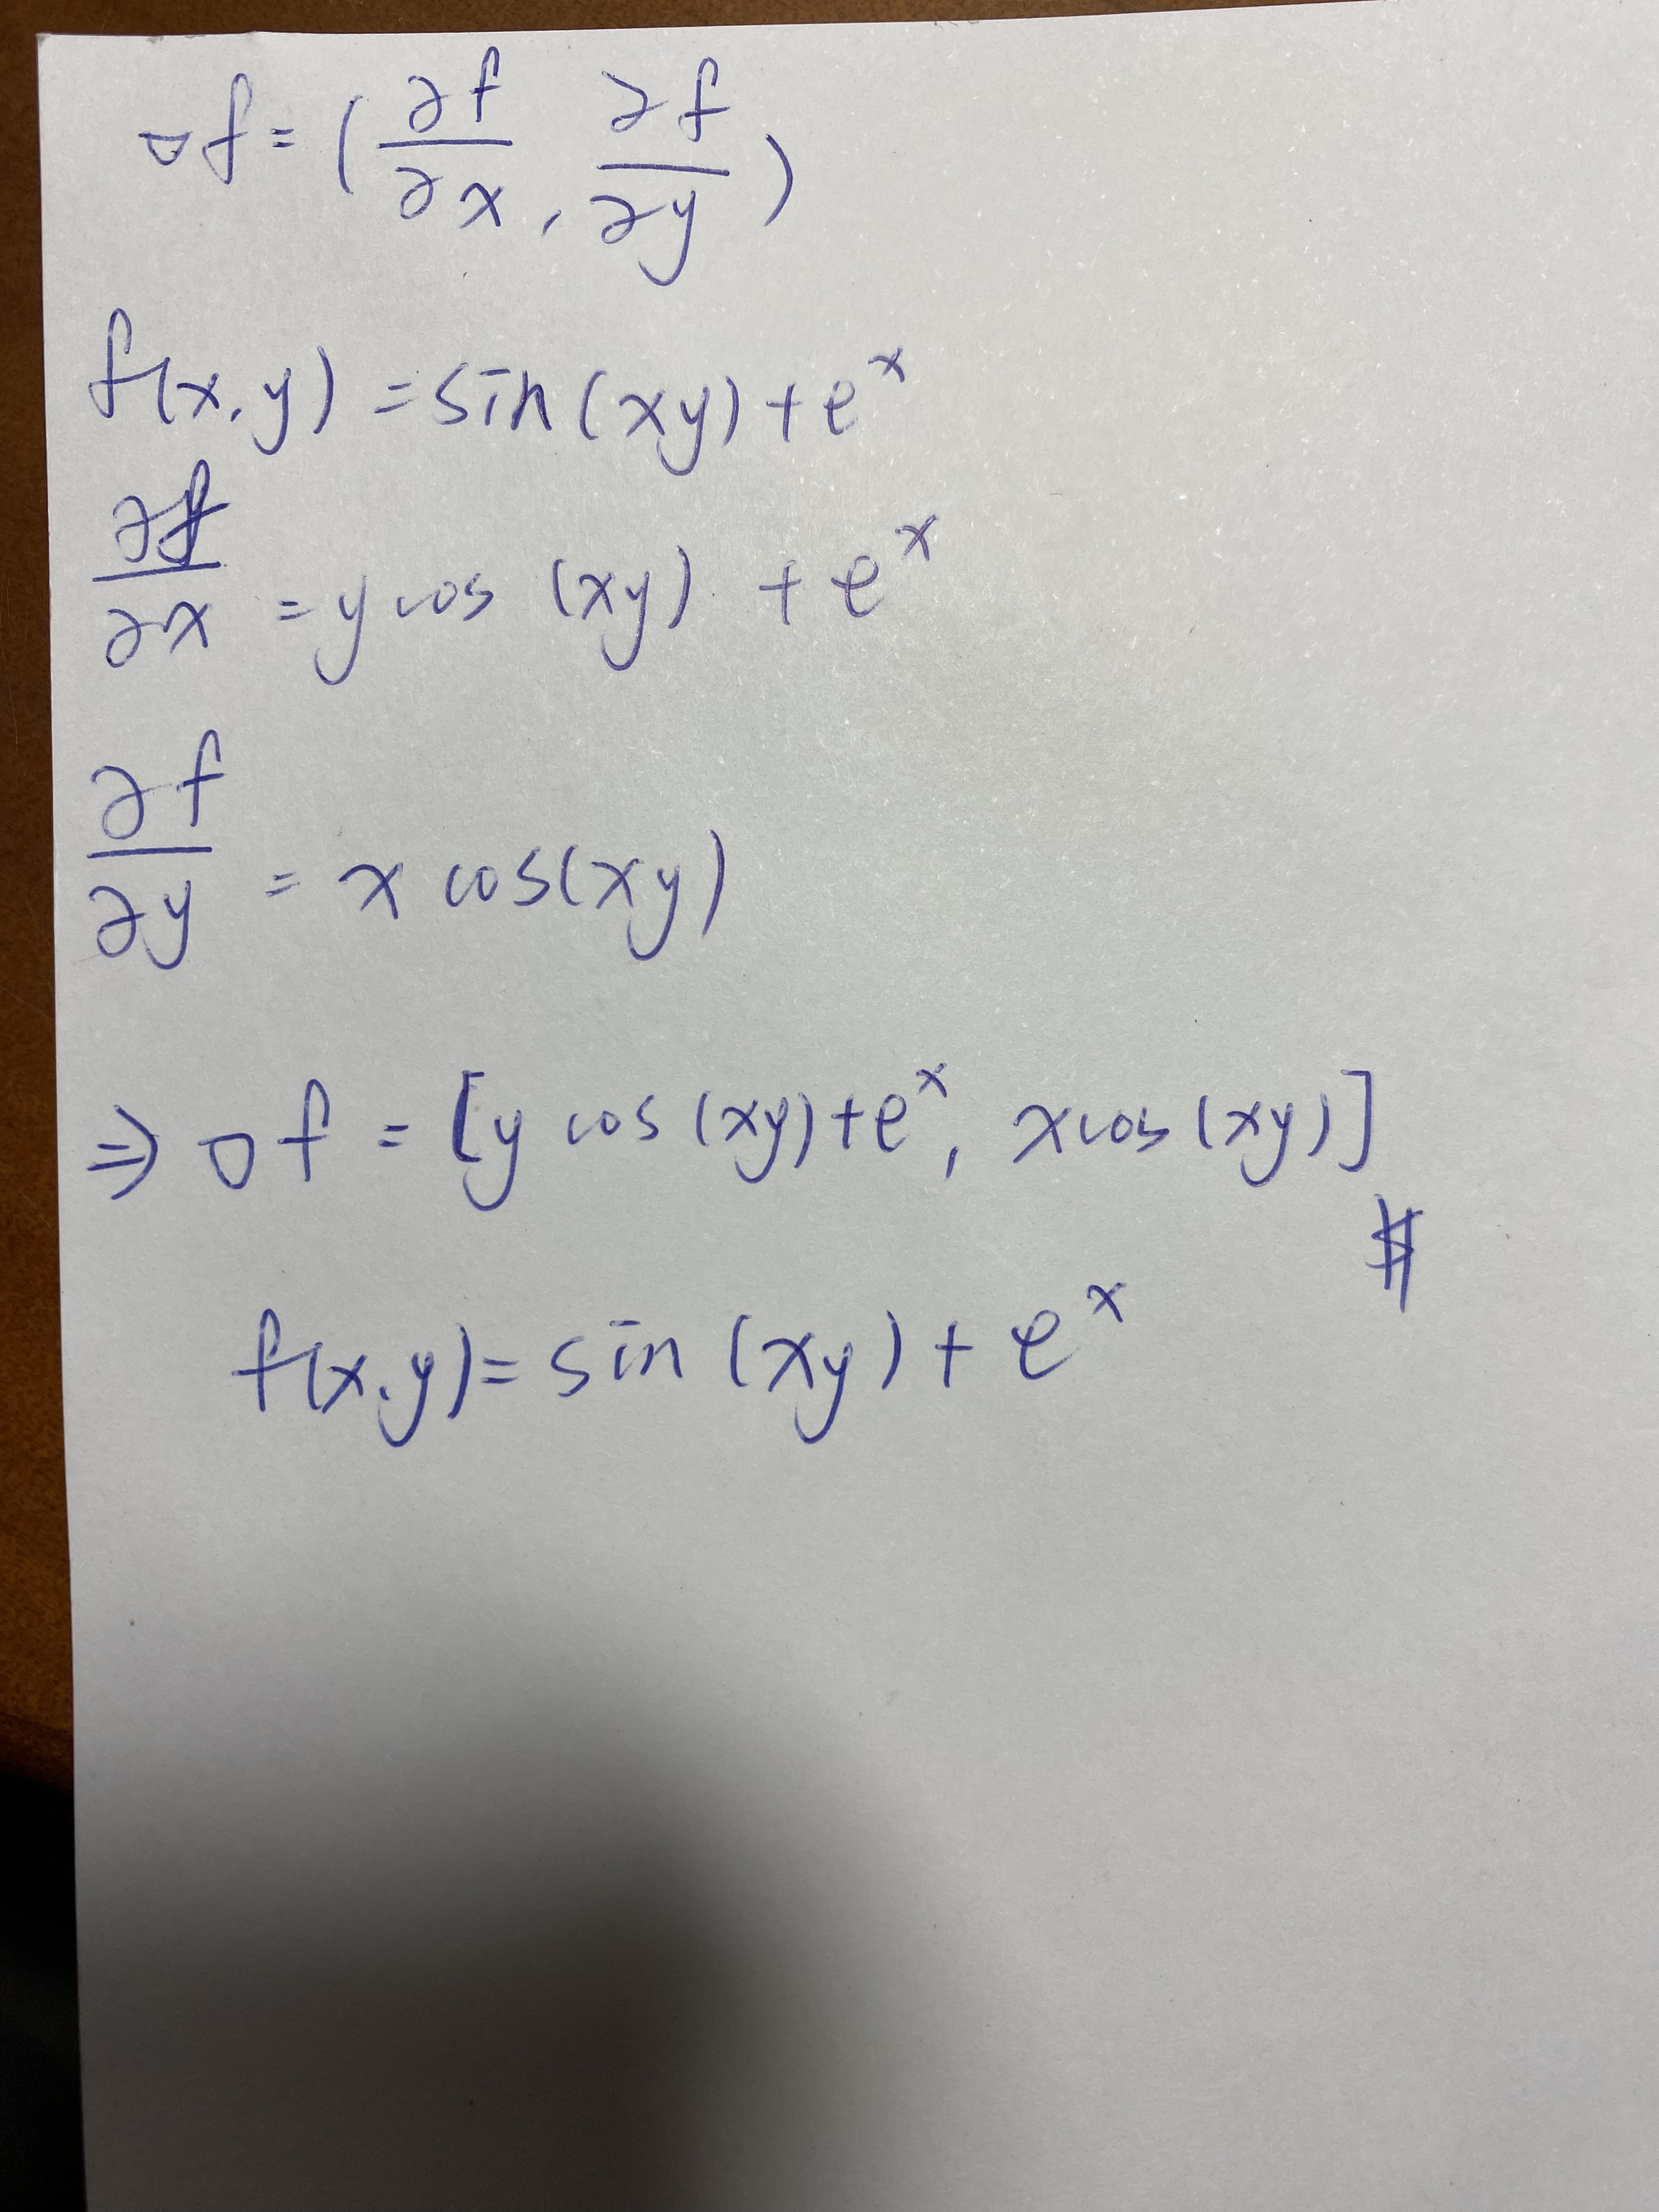 ∇f = (∂f/∂x, ∂f/∂y)
f(x,y) = sin(xy) + e^x
∂f/∂x = y cos (xy) + e^x
∂f/∂y = x cos(xy)
⇒ ∇f = [y cos(xy) + e^x, x cos(xy)]
#
f(x,y) = sin(xy) + e^x